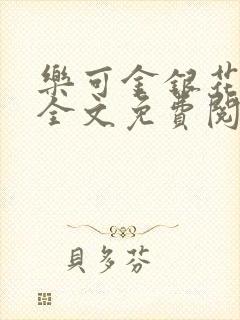 樂可金銀花
全文免費閱
貝多芬